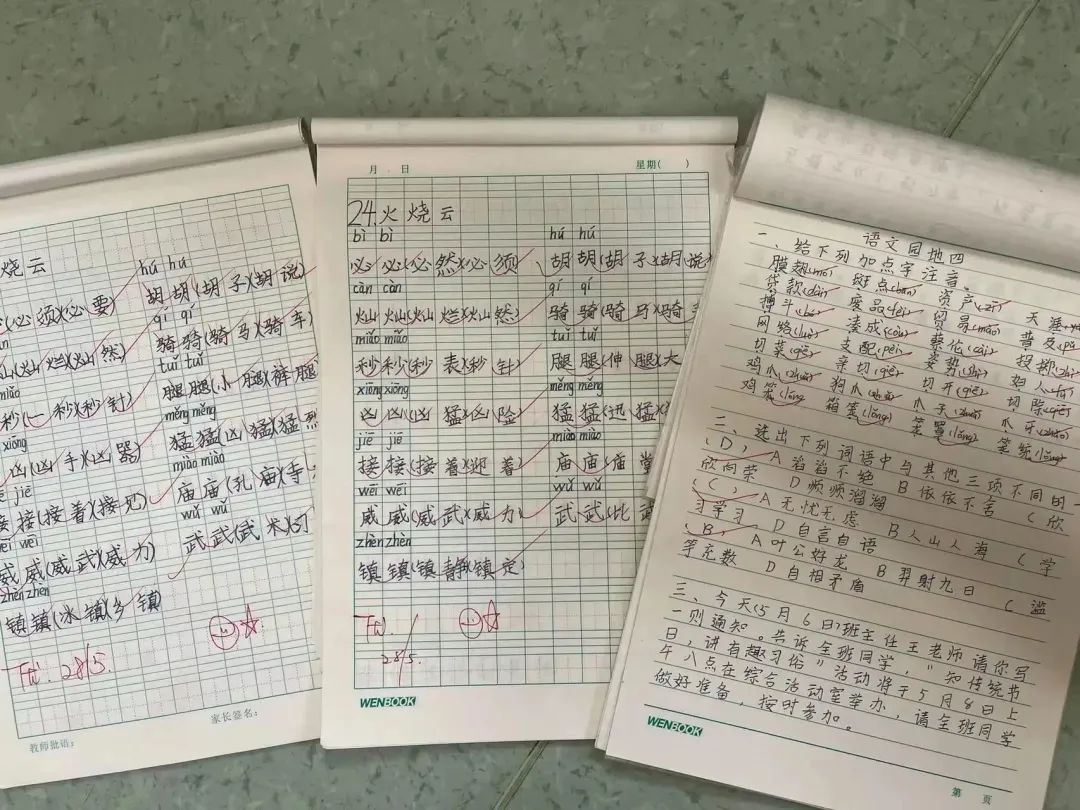 烧云
hú hú
(必须)(必要) 胡胡(胡子)(胡说)
qí qí
灿灿烂(灿然) 骑骑(骑马)(骑车)
miǎo tuǐ tuǐ
秒(一秒)(秒针) 腿腿(小腿)(裤腿
xiōng měng měng
凶(凶手)(凶器) 猛猛(凶猛)(猛烈
jiē miào miào
接接(接着)(接见) 庙庙(孔庙)(寺
wēi wēi wǔ wǔ
威威(威武)(威力) 武武(武术)(
zhèn zhèn
镇镇(冰镇)(乡镇
28/5.
家长签名:
教师批语:
月 日 星期( )
24.火烧云
bì bì hú hú
必必(必然)(必须 胡胡(胡子)(胡说)
càn càn qí qí
灿灿(灿烂)(灿然) 骑骑(骑马)(骑
miǎo miǎo tuǐ tuǐ
秒秒(秒表)(秒针) 腿腿(伸腿)(大
xiōng xiōng měng měng
凶凶(凶猛)(凶险 猛猛(迅猛)(
jiē jiē miào miào
接接(接着)(迎着 庙庙(庙堂
wēi wēi wǔ wǔ
威威(威武)(威力) 武武(比武
zhèn zhèn
镇镇(镇静)(镇定
28/5.
WENBOOK
语文园地四
一、给下列加点字注音。
膜翅(mó) 斑点(bān) 资产(zī) 天
贷款(dài) 废品(fèi) 贸易(mào) 普及
搏斗(bó) 凑成(còu) 葵花
网络(luò) 支配(pèi) 姿势(shì) 投掷(zhì)
切菜(qiē) 亲切(qiè) 切开(qiē) 妇人(fù)
鸡爪(zhuǎ) 狗爪(zhuǎ) 爪子(zhuǎ) 切除(qiē)
鸡笼(lóng 箱笼(lǒng) 笼罩(lǒng) 爪牙(zhǎo)
笼统(lǒng)
二、选出下列词语中与其他三项不同的一
(D)、A 滔滔不绝 B 依依不舍 C 欣
欣向荣 D 顺顺溜溜
(C)、A 无忧无虑 B 人山人海 C 学
习学习 D 自言自语
(B)、A 叶公好龙 B 羿射九日 C 滥
竽充数 D 自相矛盾
三、今天(5月6日)班主任王老师请你写
一则通知。告诉全班同学,“知传统节
日,讲有趣习俗”活动将于5月8日上
午八点在综合活动室举办,请全班同学
做好准备,按时参加。
WENBOOK
第 页